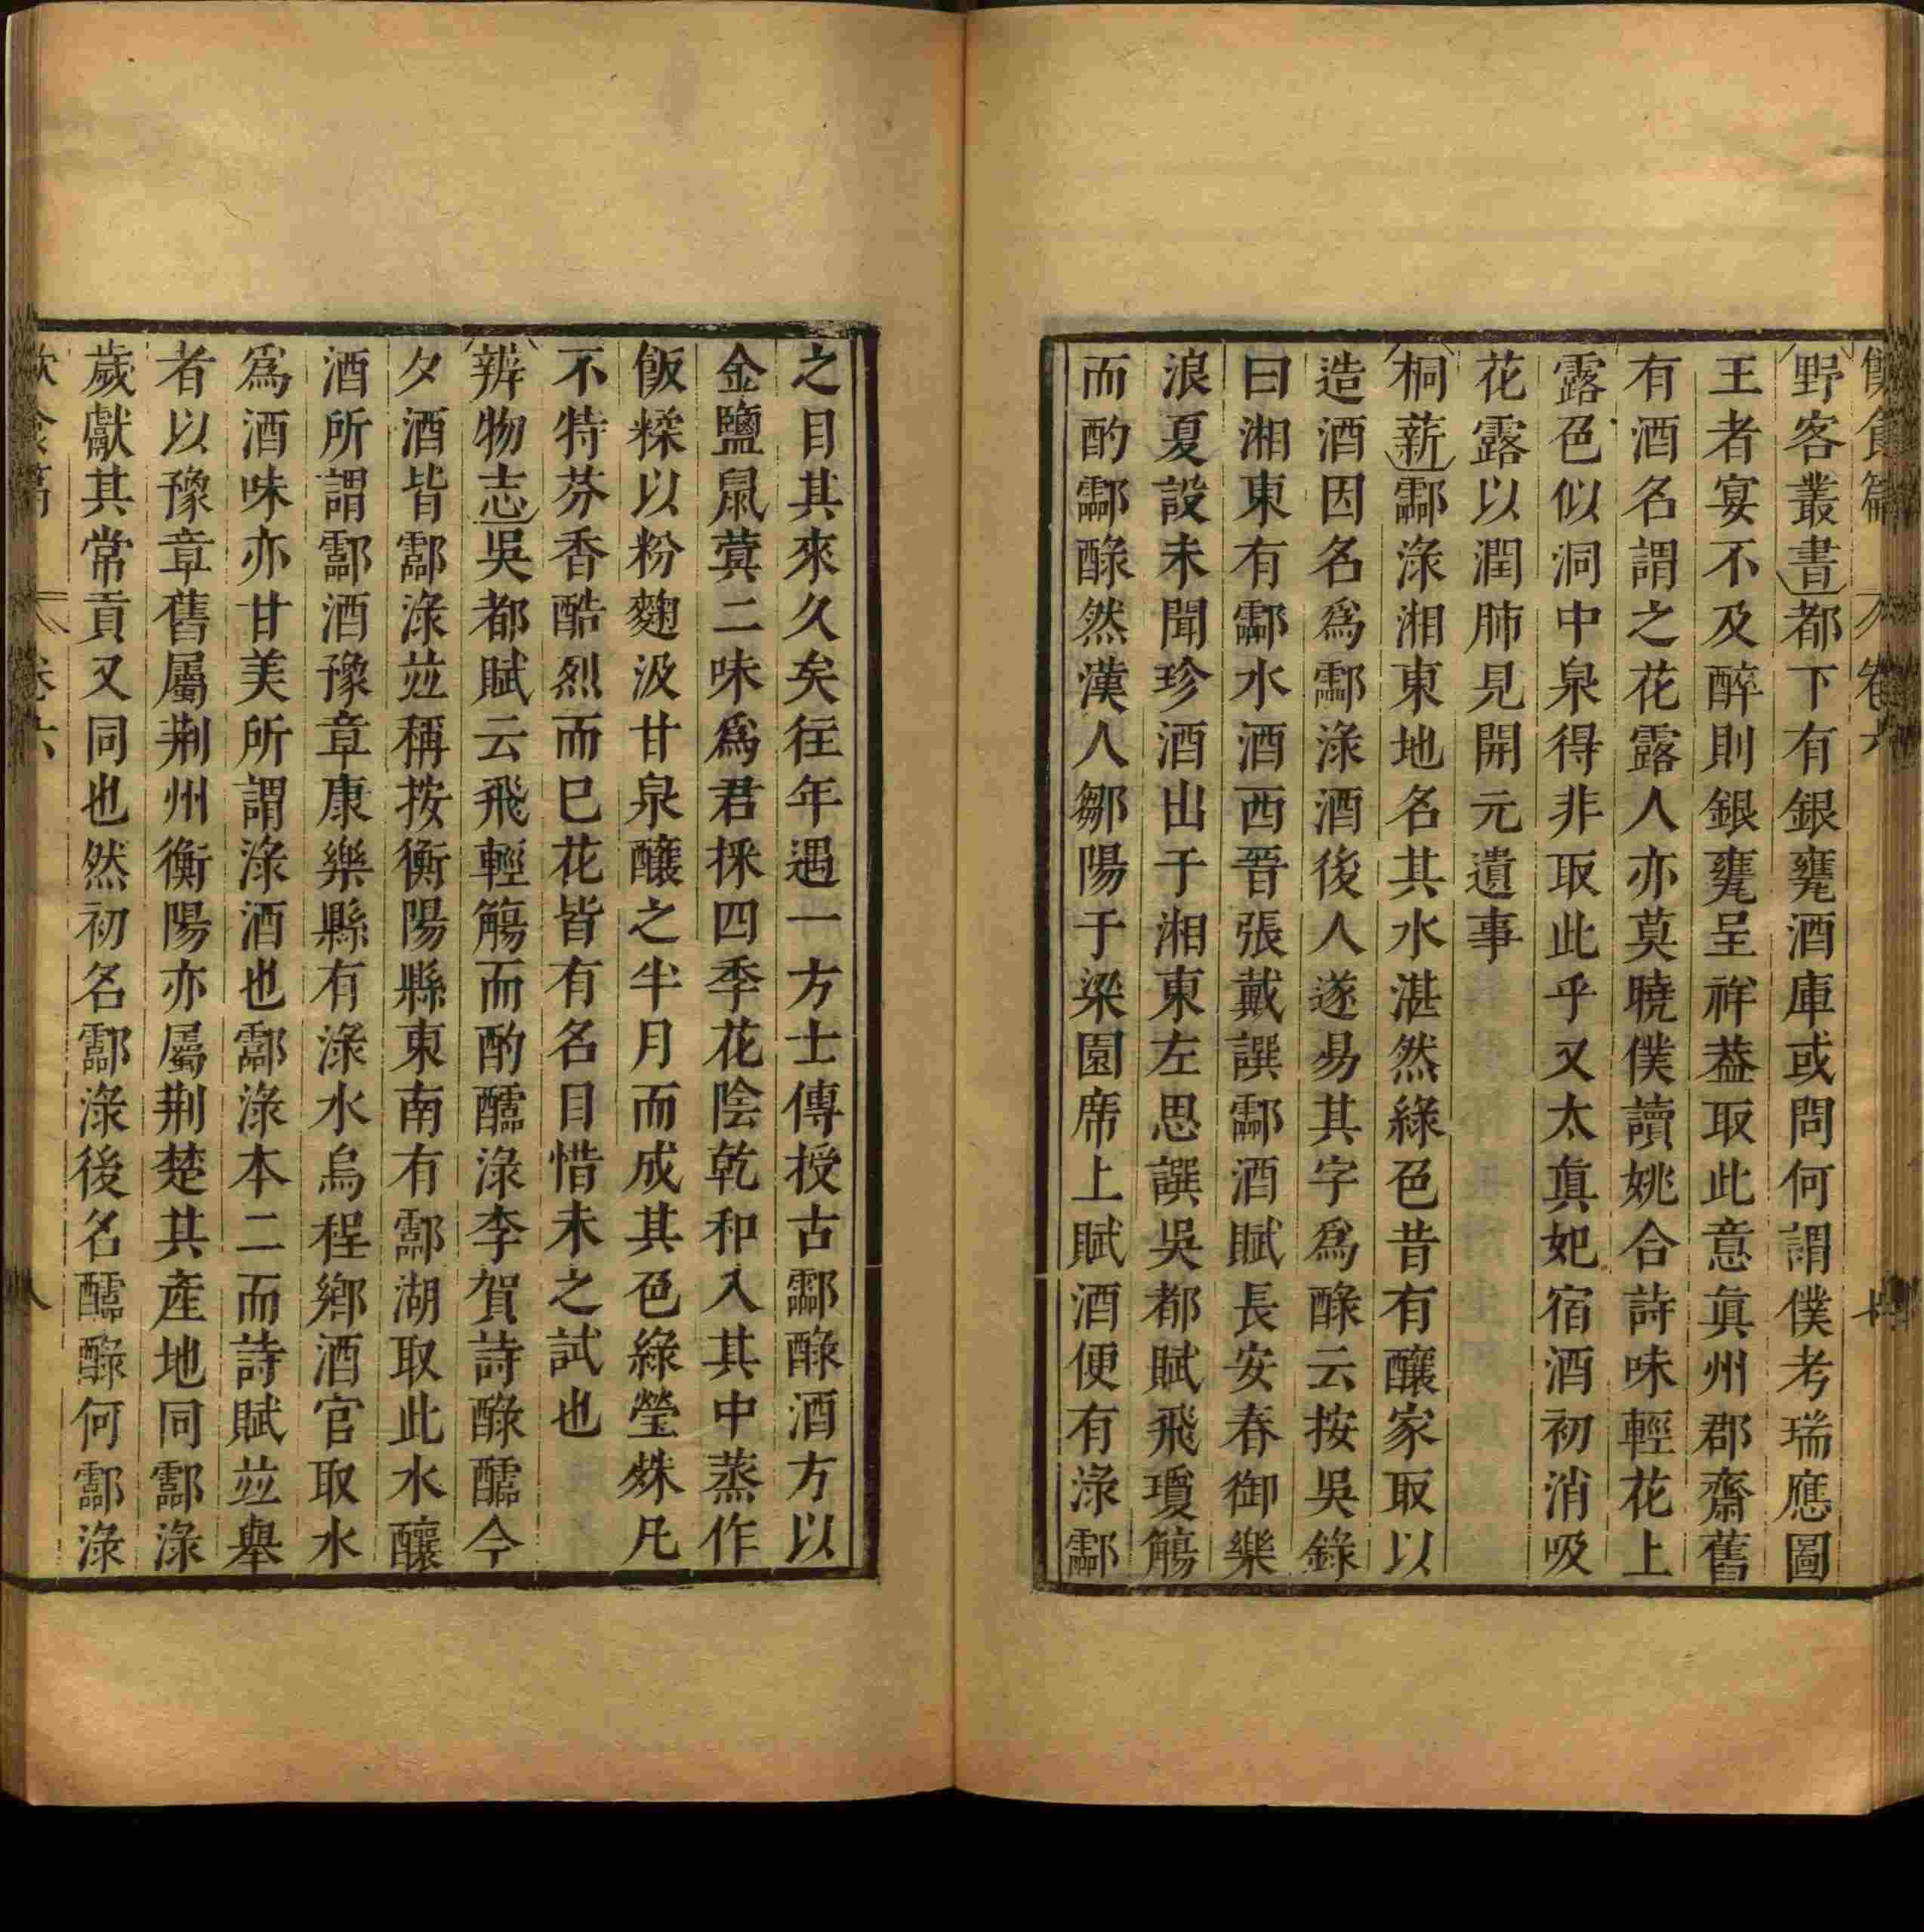 飲食篇 卷六
野客叢書都下有銀甕酒庫或問何謂僕考瑞應圖
王者宴不及醉則銀甕呈祥葢取此意眞州郡齋舊
有酒名謂之花露人亦莫曉僕讀姚合詩味輕花上
露色似洞中泉得非取此乎又太眞妃宿酒初消吸
花露以潤肺見開元遺事
桐薪酃淥湘東地名其水湛然綠色昔有釀家取以
造酒因名爲酃淥酒後人遂易其字爲醁云按吳錄
曰湘東有酃水酒西晉張載譔酃酒賦長安春御樂
浪夏設未聞珍酒出于湘東左思譔吳都賦飛瓊觴
而酌酃醁然漢人鄒陽于梁園席上賦酒便有淥酃
之目其來久矣往年遇一方士傳授古酃醁酒方以
金鹽鼠蓂二味爲君採四季花陰乾和入其中蒸作
飯糅以粉麴汲甘泉釀之半月而成其色綠瑩殊凡
不特芬香酷烈而巳花皆有名目惜未之試也
辨物志吳都賦云飛輕觴而酌醽淥李賀詩醁醽今
夕酒皆酃淥竝稱按衡陽縣東南有酃湖取此水釀
酒所謂酃酒豫章康樂縣有淥水烏程鄉酒官取水
爲酒味亦甘美所謂淥酒也酃淥本二而詩賦竝舉
者以豫章舊屬荆州衡陽亦屬荆楚其產地同酃淥
歲獻其常貢又同也然初名酃淥後名醽醁何酃淥
飲食篇 卷六 八